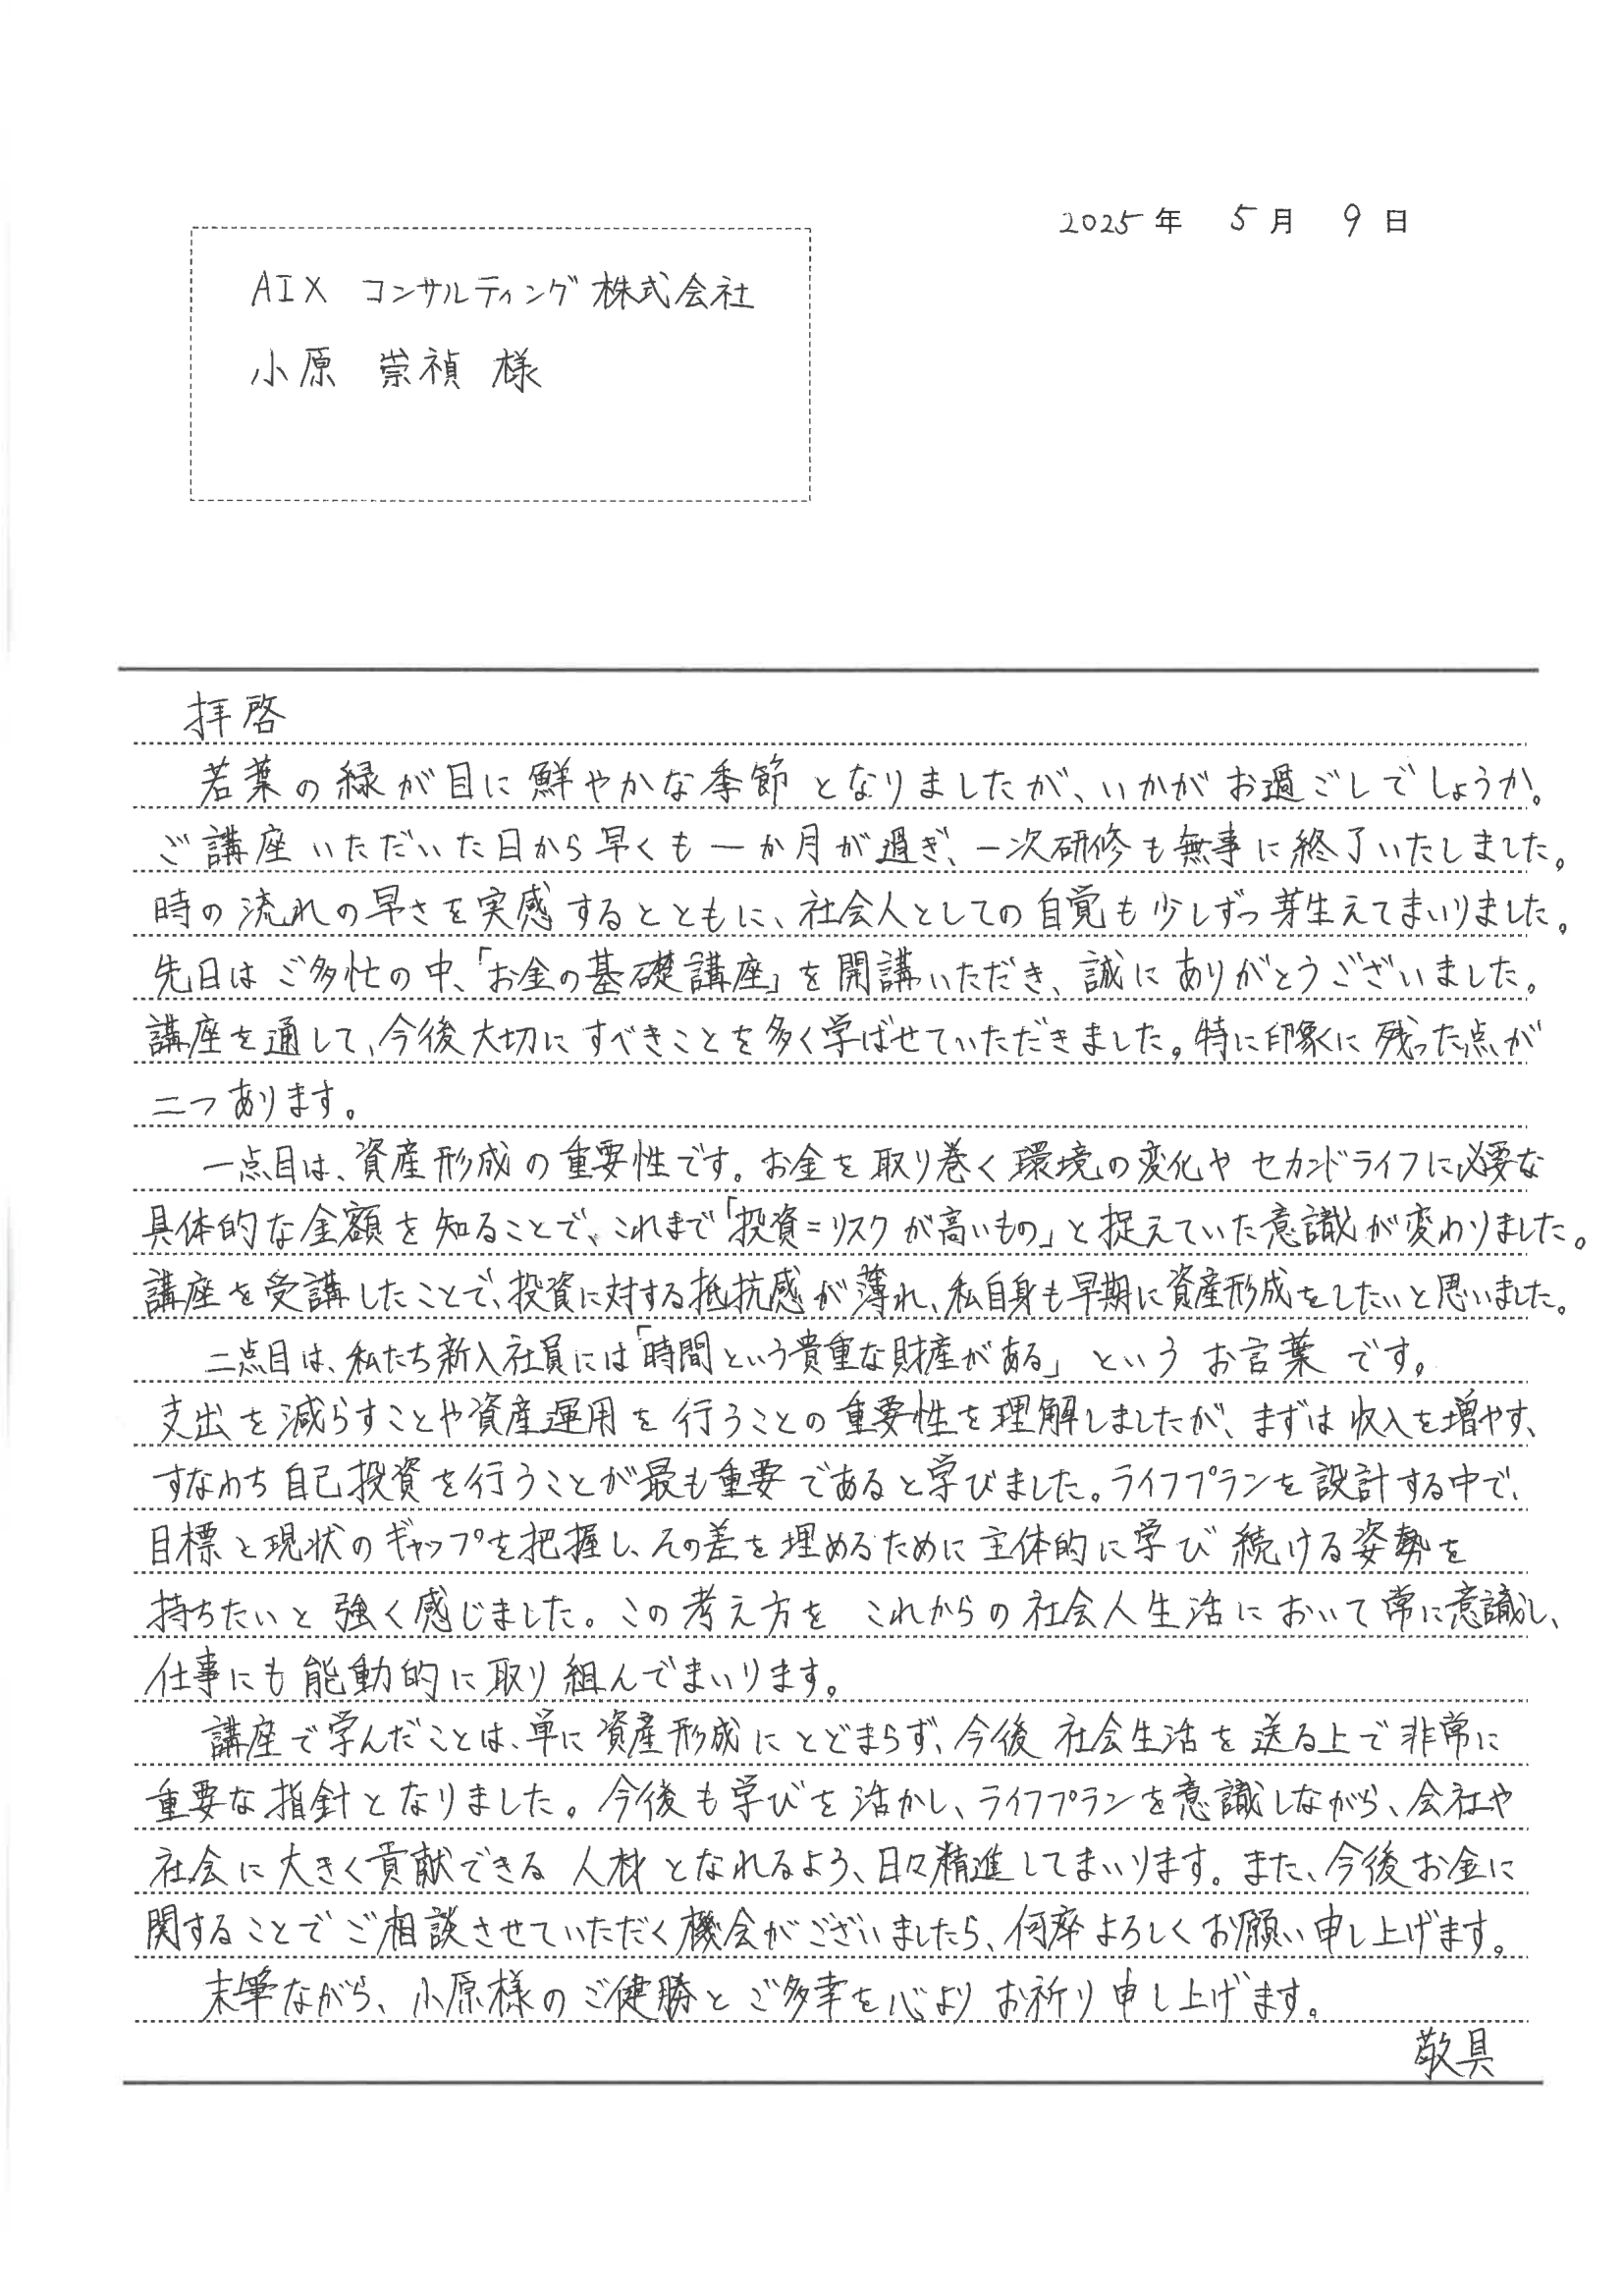 2025年 5月 9日
AIX コンサルティング株式会社
小原 崇禎 様
拝啓
若葉の緑が目に鮮やかな季節となりましたが、いかがお過ごしでしょうか。
ご講座いただいた日から早くも一か月が過ぎ、一次研修も無事に終了いたしました。
時の流れの早さを実感するとともに、社会人としての自覚も少しずつ芽生えてまいりました。
先日はご多忙の中、「お金の基礎講座」を開講いただき、誠にありがとうございました。
講座を通して、今後大切にすべきことを多く学ばせていただきました。特に印象に残った点が
二つあります。
一点目は、資産形成の重要性です。お金を取り巻く環境の変化やセカンドライフに必要な
具体的な金額を知ることで、これまで「投資=リスクが高いもの」と捉えていた意識が変わりました。
講座を受講したことで、投資に対する抵抗感が薄れ、私自身も早期に資産形成をしたいと思いました。
二点目は、私たち新入社員には「時間という貴重な財産がある」というお言葉です。
支出を減らすことや資産運用を行うことの重要性を理解しましたが、まずは収入を増やす、
すなわち自己投資を行うことが最も重要であると学びました。ライフプランを設計する中で、
目標と現状のギャップを把握し、その差を埋めるために主体的に学び続ける姿勢を
持ちたいと強く感じました。この考え方をこれからの社会人生活において常に意識し、
仕事にも能動的に取り組んでまいります。
講座で学んだことは、単に資産形成にとどまらず、今後社会生活を送る上で非常に
重要な指針となりました。今後も学びを活かし、ライフプランを意識しながら、会社や
社会に大きく貢献できる人材となれるよう、日々精進してまいります。また、今後お金に
関することでご相談させていただく機会がございましたら、何卒よろしくお願い申し上げます。
末筆ながら、小原様のご健勝とご多幸を心よりお祈り申し上げます。
敬具